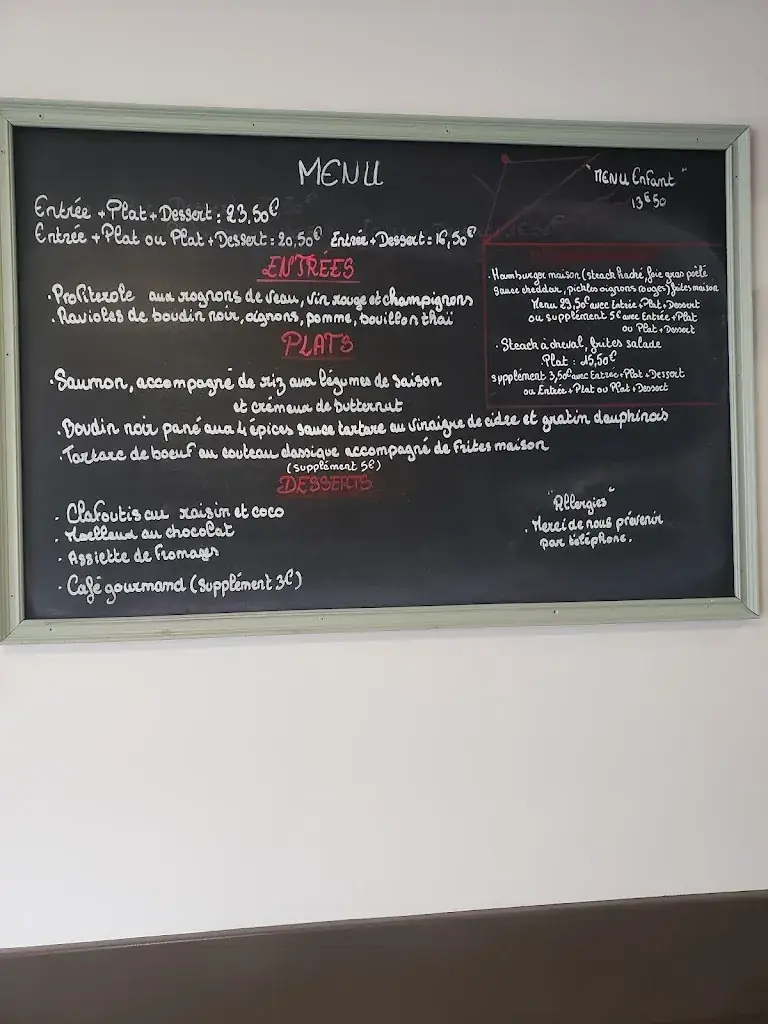 MENU
Entrée + Plat + Dessert : 23,50€
Entrée + Plat ou Plat + Dessert = 20,50€ Entrée + Dessert = 16,50€
ENTRÉES
· Profiterole aux rognons de veau, vin rouge et champignons
· Ravioles de boudin noir, oignons, pomme, bouillon thaï
PLATS
· Saumon, accompagné de riz aux légumes de saison
et crémeux de butternut
· Boudin noir pané aux 4 épices sauce tartare au vinaigre de cidre et gratin dauphinois
· Tartare de boeuf au couteau classique accompagné de Frites maison
(supplément 5€)
DESSERTS
· Clafoutis au raisin et coco
· Moelleux au chocolat
· Assiette de Fromages
· Café gourmand (supplément 3€)
"MENU Enfant"
13€50
· Hamburger maison (steack haché, foie gras poêlé
sauce cheddar, pickles oignons rouges) frites maison
Menu 29,50€ avec Entrée + Plat + Dessert
ou supplément 5€ avec Entrée + Plat
ou Plat + Dessert
· Steack à cheval, frites salade
Plat : 15,50€
supplément 3,50€ avec Entrée + Plat + Dessert
ou Entrée + Plat ou Plat + Dessert
"Allergies"
· Merci de nous prévenir
par téléphone.